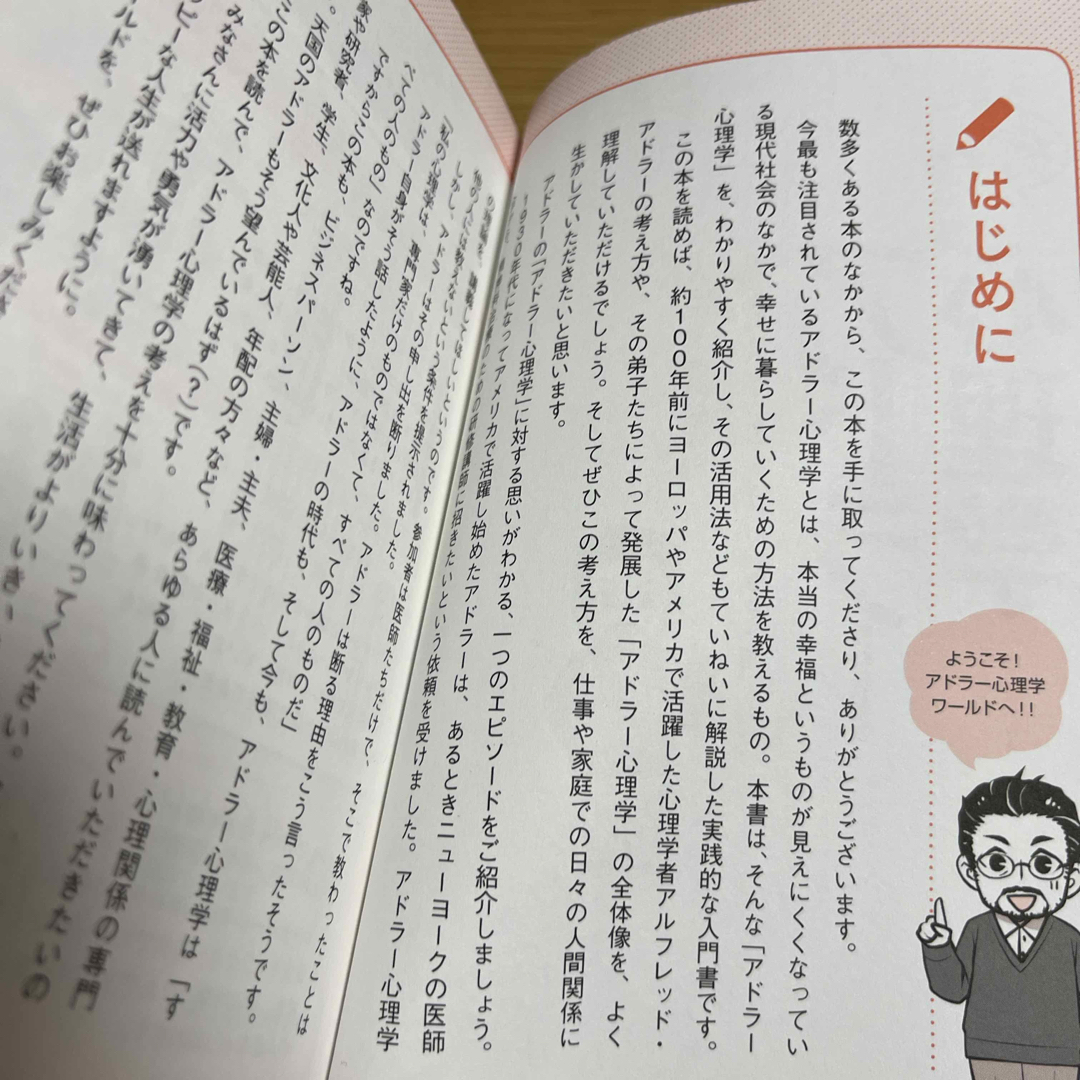 はじめに
ようこそ!
アドラー心理学
ワールドへ!!
数多くある本のなかから、この本を手に取ってくださり、ありがとうございます。
今最も注目されているアドラー心理学とは、本当の幸福というものが見えにくくなってい
る現代社会のなかで、幸せに暮らしていくための方法を教えるもの。本書は、そんな「アドラー
心理学」を、わかりやすく紹介し、その活用法などもていねいに解説した実践的な入門書です。
この本を読めば、約100年前にヨーロッパやアメリカで活躍した心理学者アルフレッド・
アドラーの考え方や、その弟子たちによって発展した「アドラー心理学」の全体像を、よく
理解していただけるでしょう。そしてぜひこの考え方を、仕事や家庭での日々の人間関係に
生かしていただきたいと思います。
アドラーの「アドラー心理学」に対する思いがわかる、一つのエピソードをご紹介しましょう。
1930年代になってアメリカで活躍し始めたアドラーは、あるときニューヨークの医師
のための研修講師に招きたいという依頼を受けました。アドラー心理学
を、講義してほしいというのです。参加者は医師たちだけで、そこで教わったことは
他の人には教えないという条件を提示されました。
しかし、アドラーはその申し出を断りました。アドラーは断る理由をこう言ったそうです。
「私の心理学は、専門家だけのものではなくて、すべての人のものだ」
アドラー自身がそう話したように、アドラーの時代も、そして今も、アドラー心理学は「す
べての人のもの」なのですね。
ですからこの本も、ビジネスパーソン、主婦・主夫、医療・福祉・教育・心理関係の専門
家や研究者、学生、文化人や芸能人、年配の方々など、あらゆる人に読んでいただきたいの
。天国のアドラーもそう望んでいるはず(?)です。
この本を読んで、アドラー心理学の考えを十分に味わってください。
みなさんに活力や勇気が湧いてきて、生活がよりいき
ピーな人生が送れますように。
ルドを、ぜひお楽しみくだ